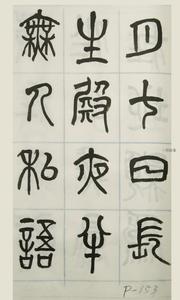 月七日長
生殿夜半
無人私語
P-153